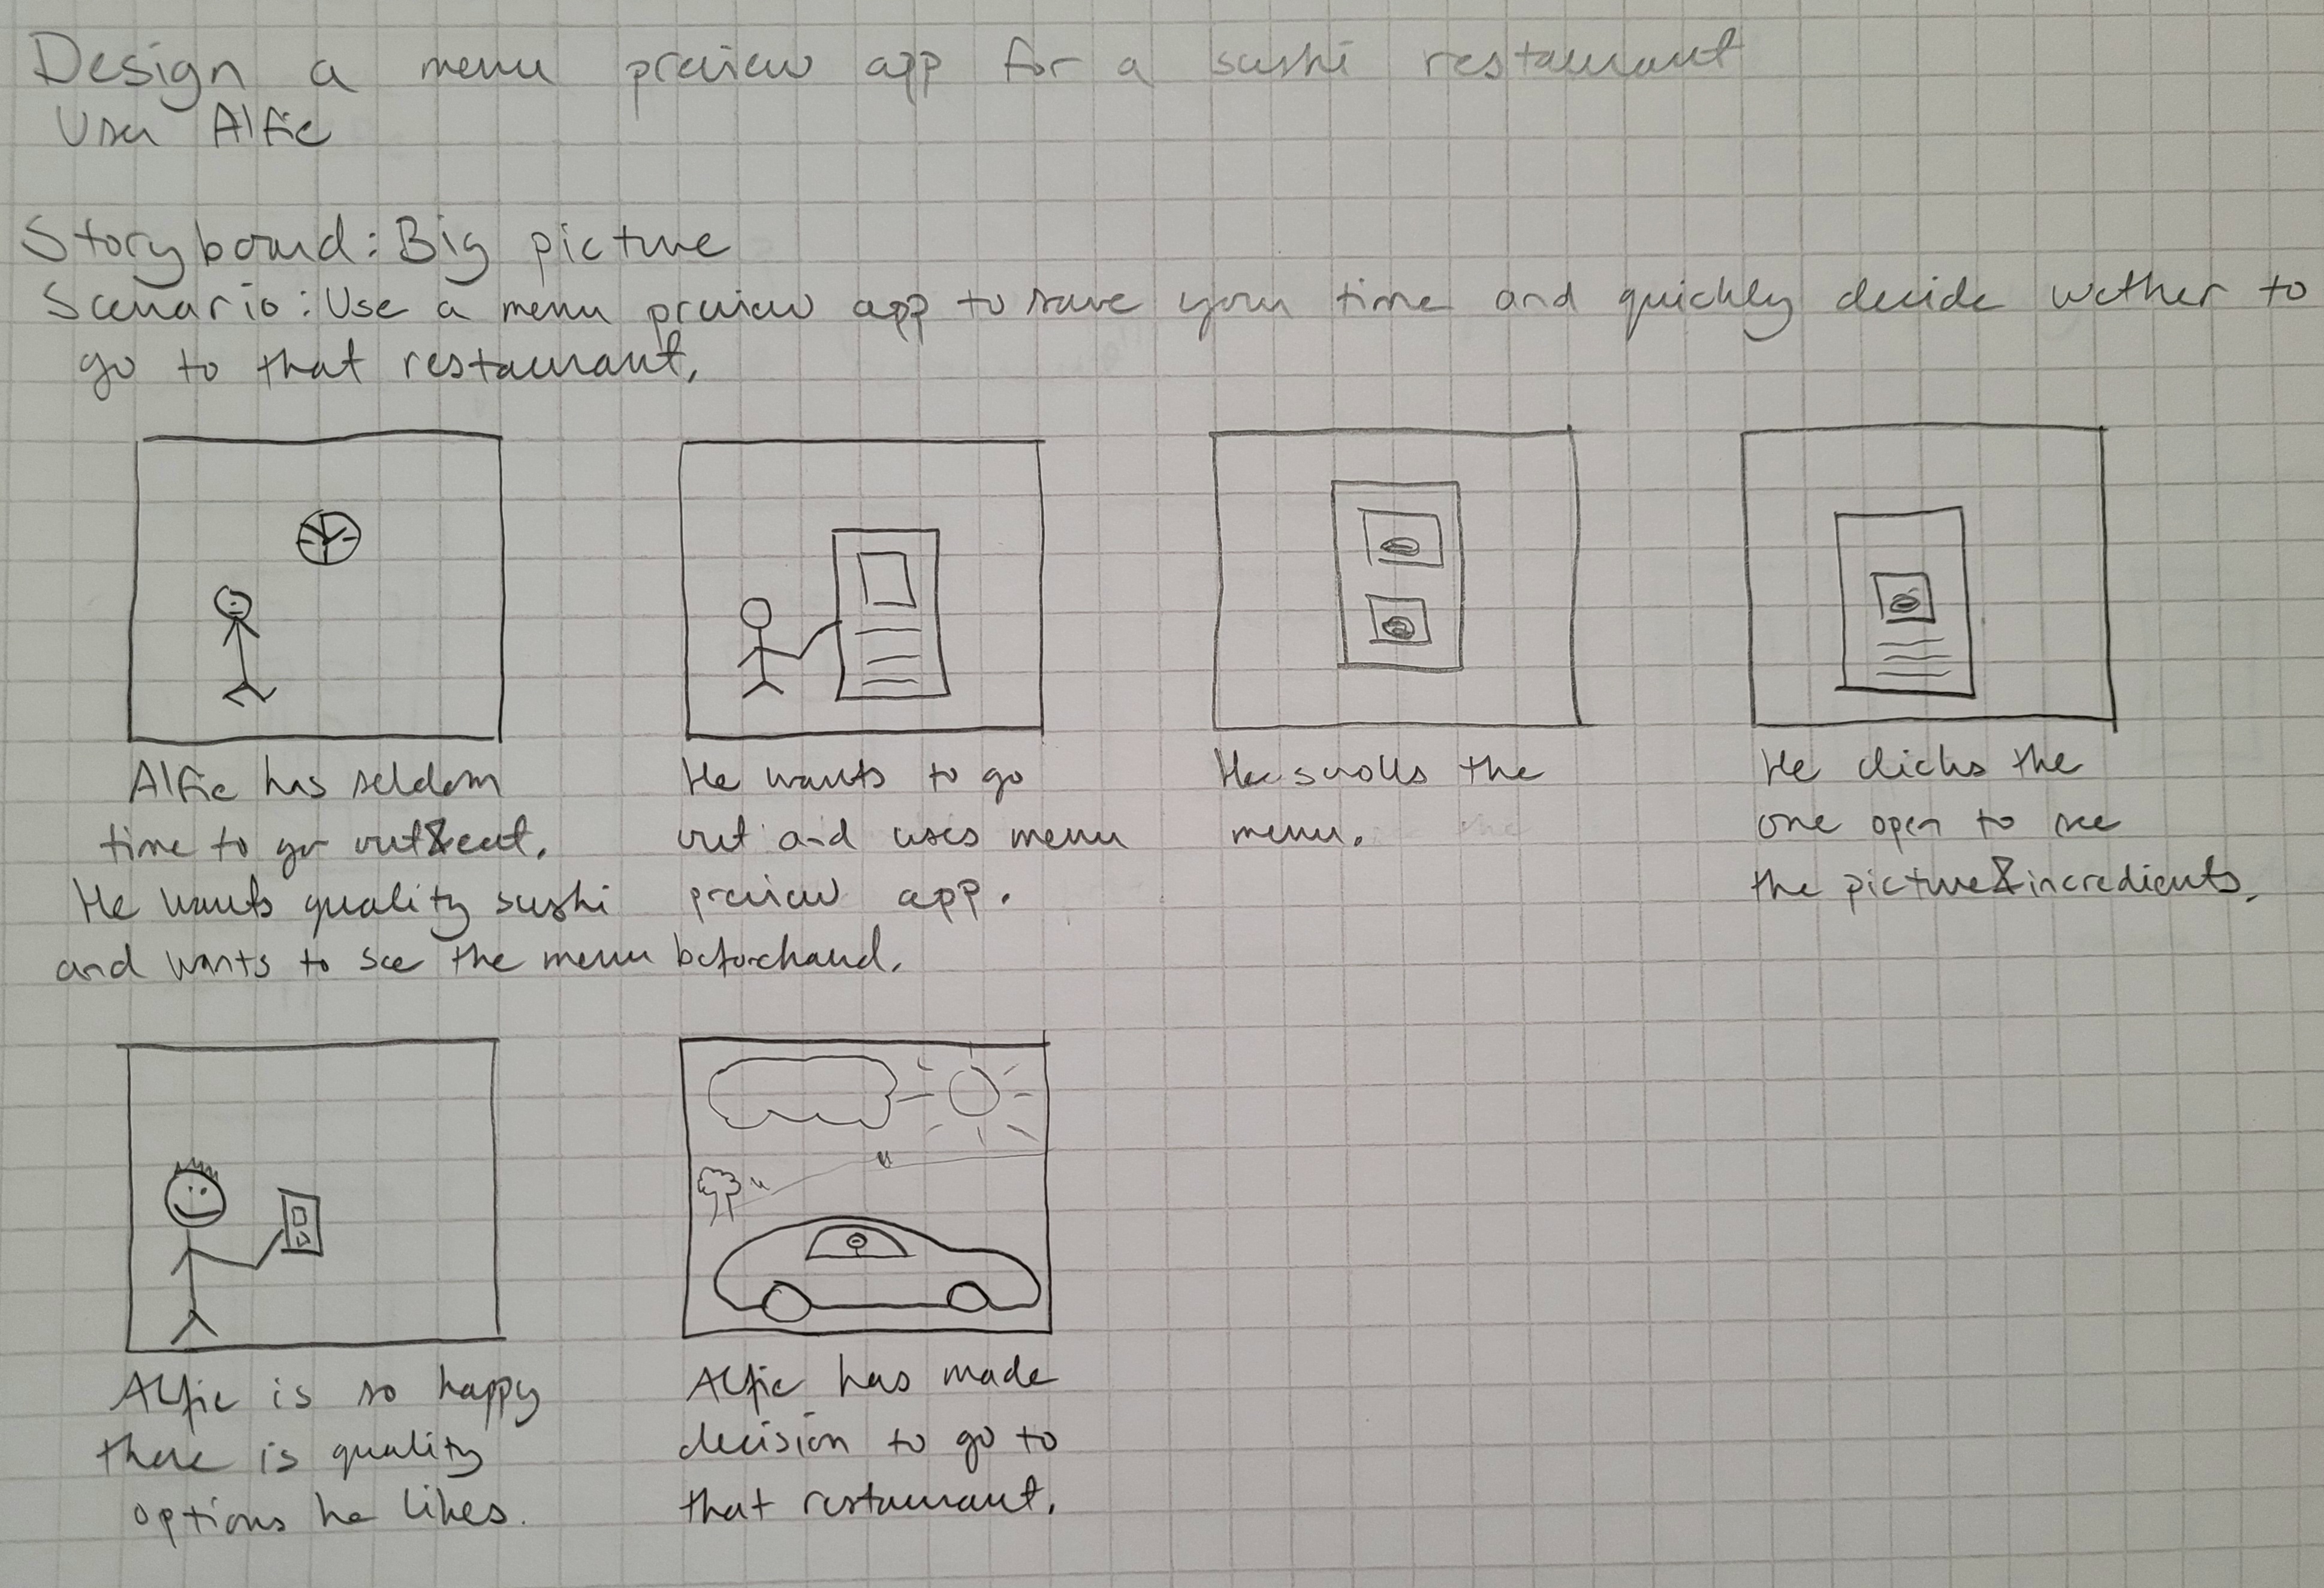 Design a menu preview app for a sushi restaurant
User Alfie
Storyboard: Big picture
Scenario: Use a menu preview app to save your time and quickly decide wether to
go to that restaurant.
Alfie has seldom
time to go out & eat.
He wants quality sushi
and wants to see the menu beforehand.
He wants to go
out and uses menu
preview app.
He scrolls the
menu.
He clicks the
one open to see
the picture & incredients.
Alfie is so happy
there is quality
options he likes.
Alfie has made
decision to go to
that restaurant.